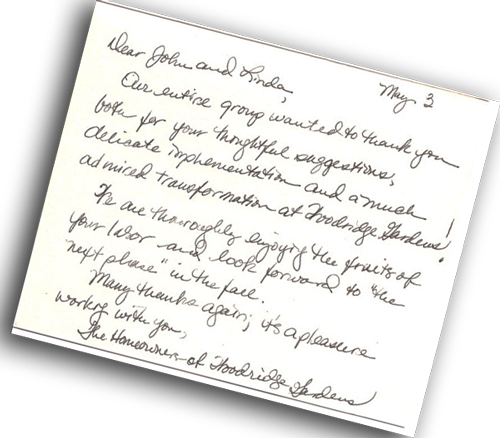 May 3
Dear John and Linda,
Our entire group wanted to thank you
both for your thoughtful suggestions,
delicate implementation and a much
admired transformation at Woodridge Gardens!
We are thoroughly enjoying the fruits of
your labor and look forward to "the
next phase" in the fall.
Many thanks again; it's a pleasure
working with you,
The Homeowners of Woodridge Gardens